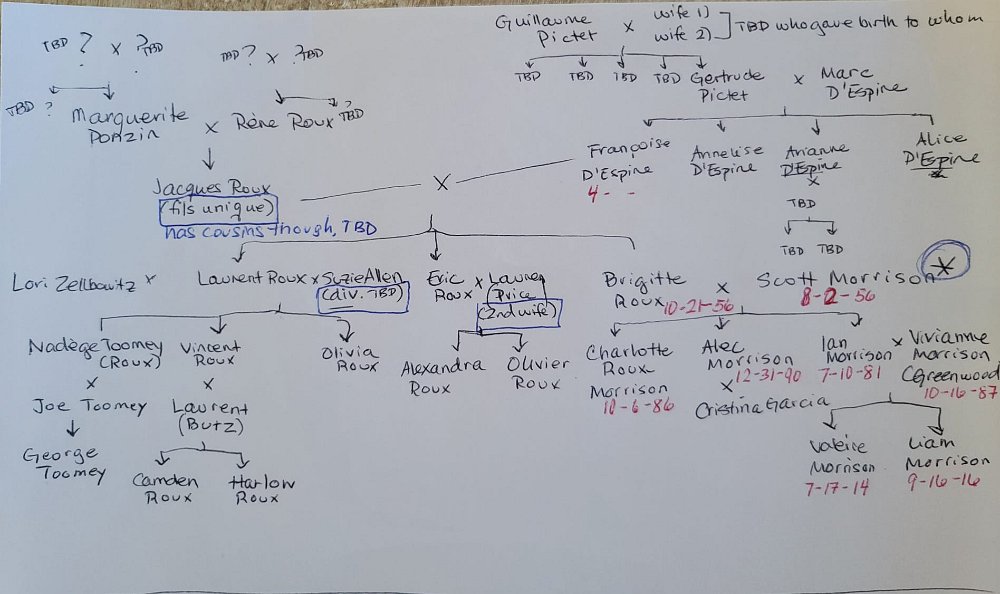 Guillaume Pictet x wife 1) wife 2) TBD who gave birth to whom
TBD ? x ? TBD
TBD ? x ? TBD
TBD TBD TBD TBD Gertrude Pictet x Marc D'Espine
TBD ? Marguerite Ponzin x Rène Roux ? TBD
Françoise D'Espine
4 - -
Annelise D'Espine
Arianne D'Espine
x
TBD
TBD TBD
Alice D'Espine
Jacques Roux
(fils unique)
has cousins though, TBD
x
Lori Zellbavitz x Laurent Roux x Suzie Allen
(div. TBD)
Eric Roux x Lauren Price
(2nd wife)
Brigitte Roux 10-21-56 x Scott Morrison *
8-2-56
Nadège Toomey (Roux)
x
Joe Toomey
George Toomey
Vincent Roux
x
Laurent (Butz)
Camden Roux
Harlow Roux
Olivia Roux
Alexandra Roux
Olivier Roux
Charlotte Roux Morrison
10-6-86
Alec Morrison
12-31-90
x
Cristina Garcia
Ian Morrison
7-10-81
x Vivianne Morrison
(Greenwood
10-16-87
Valerie Morrison
7-17-14
Liam Morrison
9-16-16